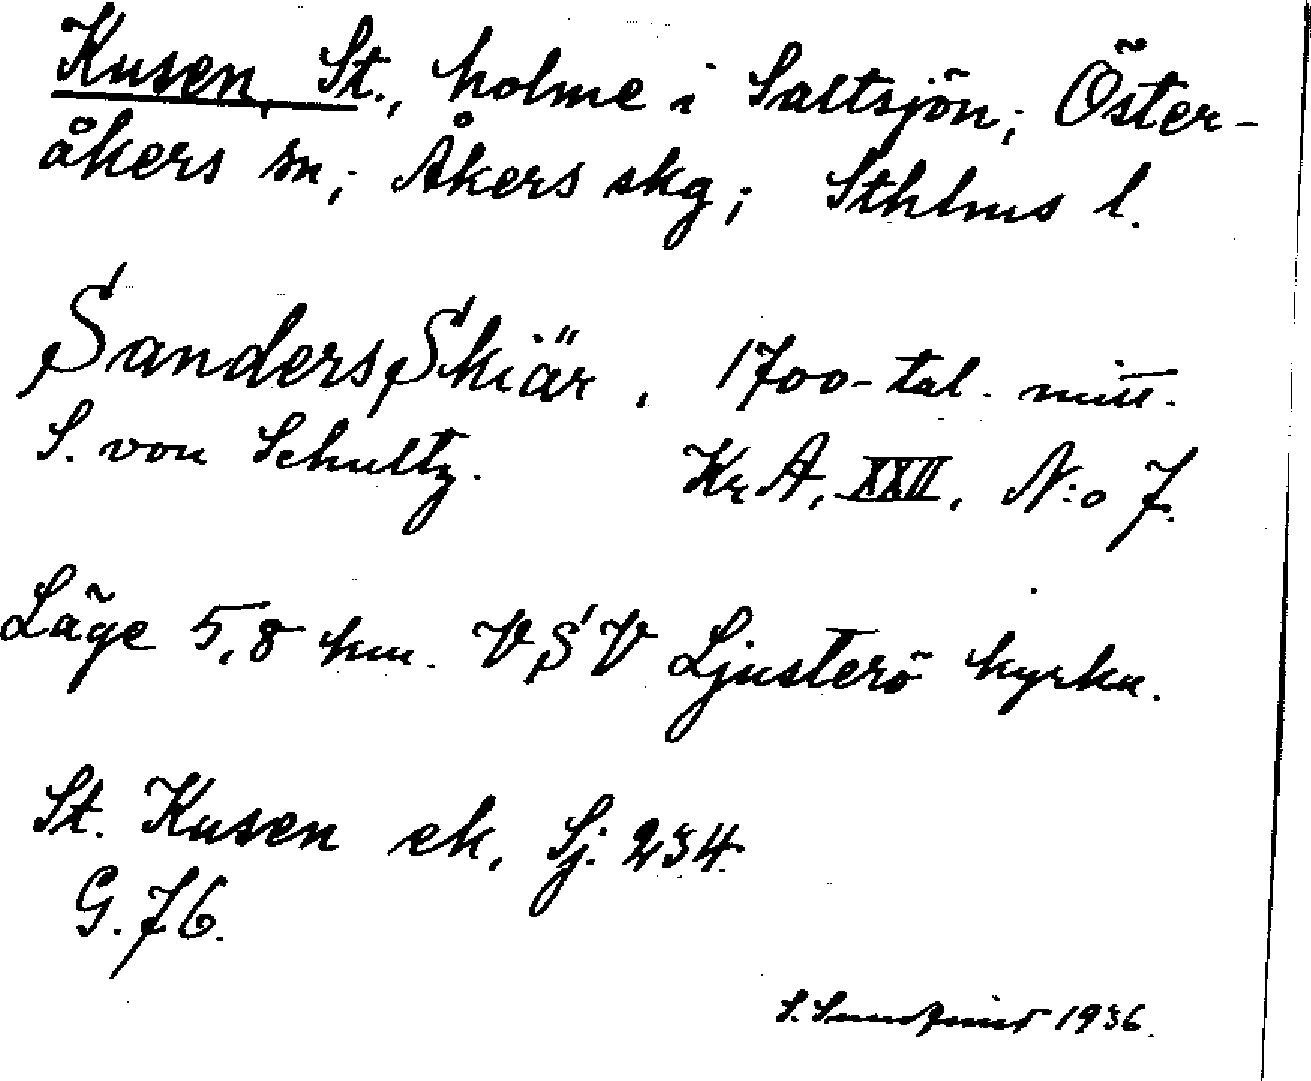 Kusen, St., holme i Saltsjön; Öster-
åkers sn; Åkers skg; Sthlms l.
Sanders Skiär, 1700-tal. mitt.
S. von Schultz. Kr A, XXII, N:o 7.
Läge 5,8 km. VSV Ljusterö kyrka.
St. Kusen ek. Sj. 234
G. 76.
S. 1936.